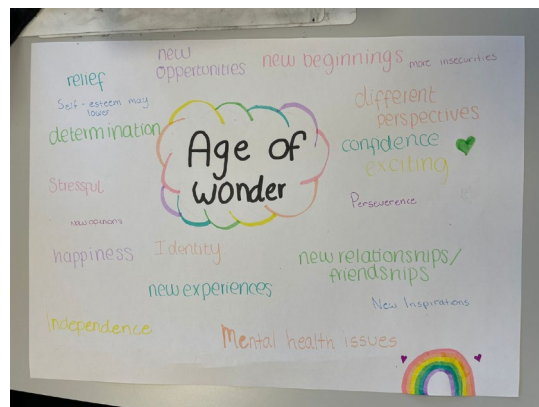 new
oppertunities
new beginnings
more insecurities
relief
Self-esteem may
lower
different
perspectives
determination
Age of
wonder
confidence
exciting
Stressful
Perseverence
new opinions
happiness
Identity
new relationships/
friendships
new experiences
New Inspirations
Independence
Mental health issues